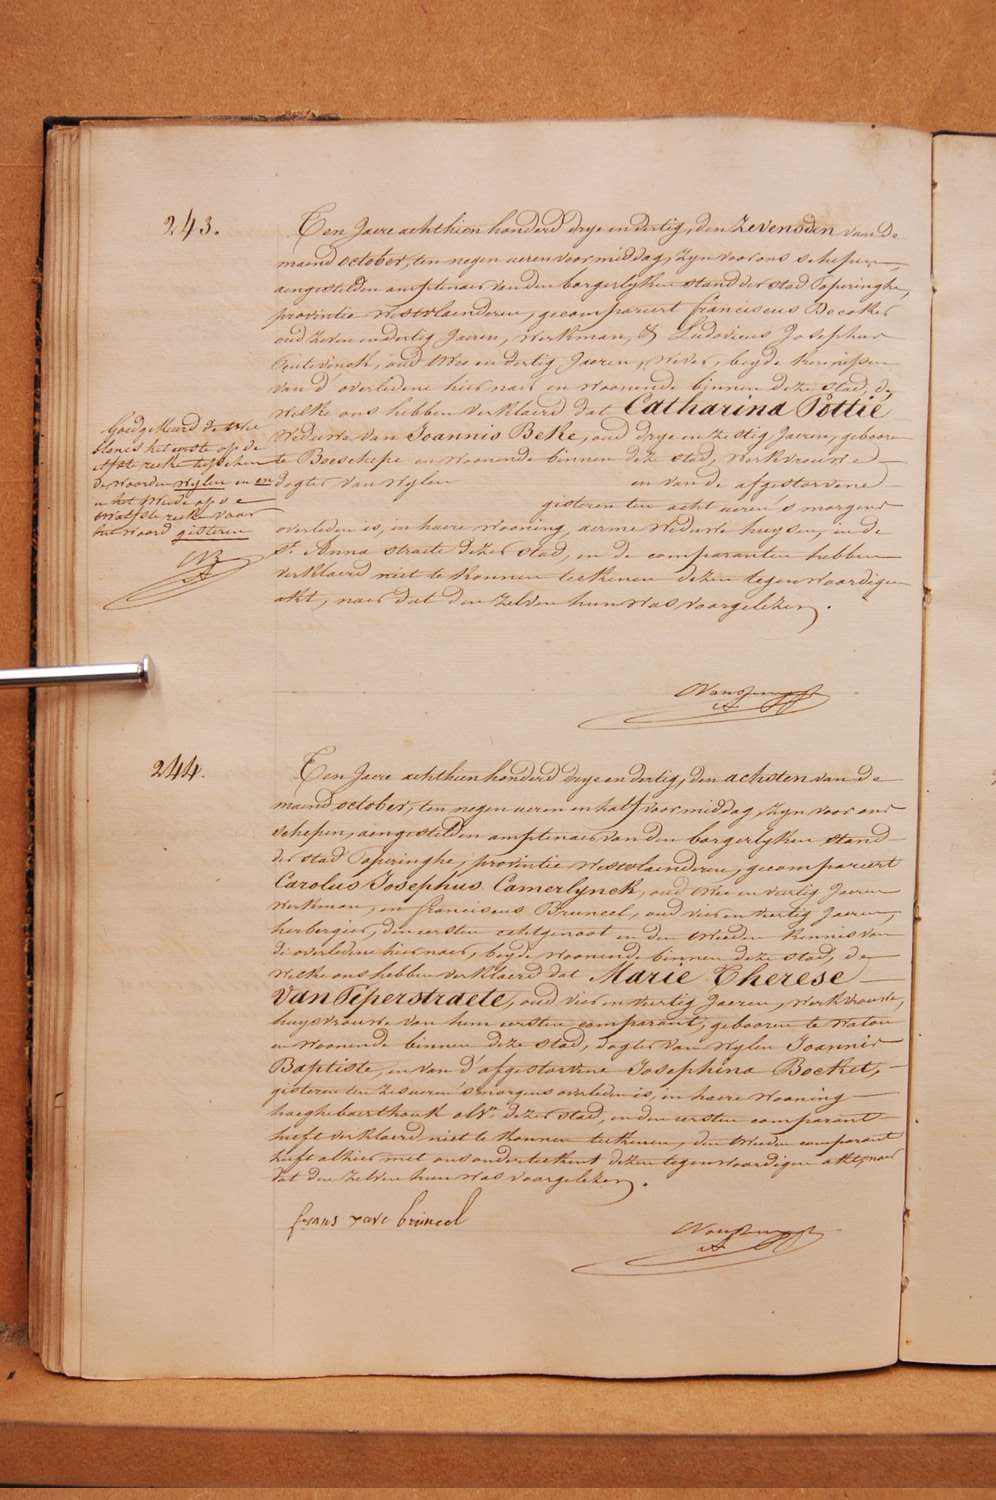 243.
Ten Jaere achthien honderd drye en dertig, den zevensden van de
maend october, ten negen ueren voor middag, zyn voor ons schepen,
aengestelden amptenaer van den borgerlyken stand der stad Poperinghe,
provintie Westvlaenderen, gecompareert franciscus Decoker
oud zeven en dertig Jaeren, werkman, & Ludovicus Josephus
oud twee en dertig Jaeren, wever, beyde kennissen
van d'overledene hier naer en woonende binnen deze stad, de
welke ons hebben verklaerd dat Catharina Pottié
Weduwe van Joannis Beke, oud drye en zestig Jaeren, gebooren
te Boeschepe en woonende binnen deze stad, werkvrouwe
dogter van wylen en van de afgestorvene
gisteren ten acht ueren 's morgens
overleden is, in haere wooning, aerme weduwe huysen, in de
St. Anna straete dezer stad, en de comparanten hebben
verklaerd niet te konnen teekenen dezen tegenwoordigen
akt, naer dat den zelven hun was voorgelezen.
Goedgekeurd de twee
blancs het eerste op de
elfste reke tusschen
de woorden wylen en en
en het tweede op de
twalfste reke voor
het woord gisteren
244.
Ten Jaere achthien honderd drye en dertig, den achsten van de
maend october, ten negen ueren en half voor middag, zyn voor ons
schepen, aengestelden amptenaer van den borgerlyken stand
der stad Poperinghe, provintie Westvlaenderen, gecompareert
Carolus Josephus Camerlynck, oud twee en veertig Jaeren
werkman, en franciscus Bruneel, oud vier en veertig Jaeren,
herbergier, den eersten echtgenoot en den tweeden kennis van
de overledene hier naer, beyde woonende binnen deze stad, de
welke ons hebben verklaerd dat Marie Therese
Van Peperstraete, oud vier en veertig Jaeren, werkvrouwe,
huysvrouwe van hun eersten comparant, gebooren te Watou
en woonende binnen deze stad, dogter van wylen Joannis
Baptiste, en van d'afgestorvene Josephina Bocket,
gisteren ten zes ueren 's morgens overleden is, in haere wooning
dezer stad, en den eersten comparant
heeft verklaerd niet te konnen teekenen, den tweeden comparant
heeft alhier met ons onderteekent dezen tegenwoordigen akt, naer
dat den zelven hun was voorgelezen.
frans xave bruneel